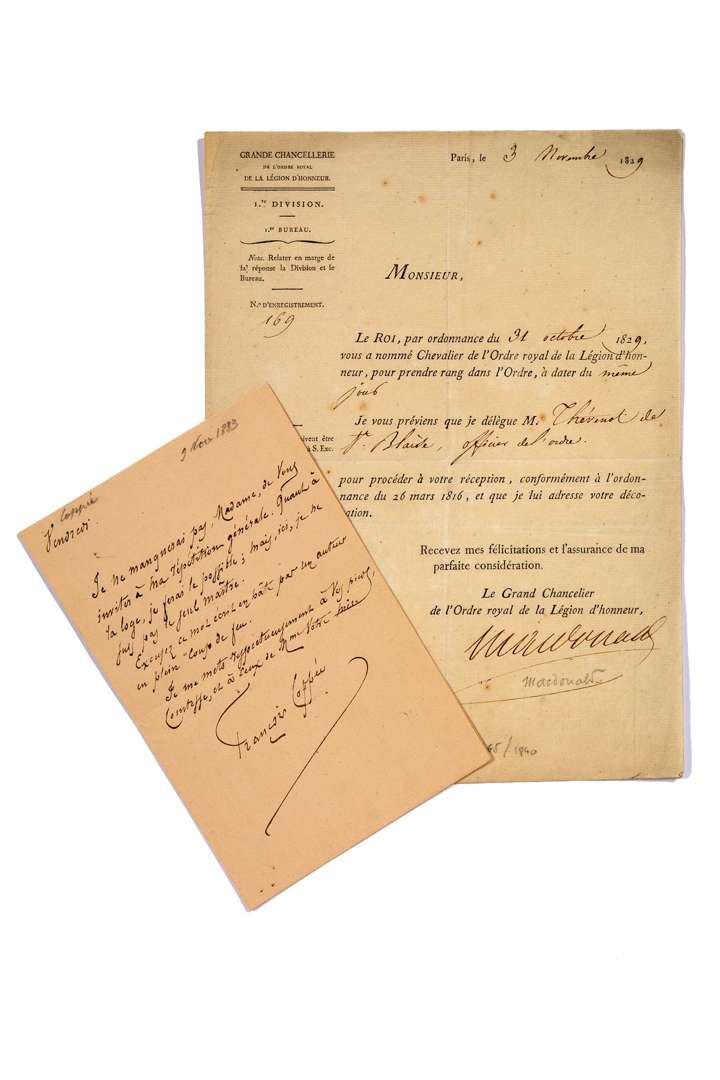 GRANDE CHANCELLERIE
DE L'ORDRE ROYAL
DE LA LÉGION D'HONNEUR.
1.re DIVISION.
1.er BUREAU.
Nota. Relater en marge de
la réponse la Division et le
Bureau.
N.o D'ENREGISTREMENT.
169
Paris, le 3 Novembre 1829
MONSIEUR,
Le ROI, par ordonnance du 31 octobre 1829,
vous a nommé Chevalier de l'Ordre royal de la Légion d'hon-
neur, pour prendre rang dans l'Ordre, à dater du même
jour
Je vous préviens que je délègue M. Thévenot de
St. Blaise, officier de l'ordre.
pour procéder à votre réception, conformément à l'ordon-
nance du 26 mars 1816, et que je lui adresse votre déco-
ration.
Recevez mes félicitations et l'assurance de ma
parfaite considération.
Le Grand Chancelier
de l'Ordre royal de la Légion d'honneur,
Macdonald
Macdonald
/1840
doivent être
à S. Exc.
3 Nov 1883
Coppée
Vendredi.
Je ne manquerai pas, Madame, de vous
inviter à ma répétition générale. Quant à
la loge, je ferai le possible; mais, ici, je ne
suis pas le seul maître.
Excusez ce mot écrit en hâte par un auteur
en plein coup de feu.
Je me mets respectueusement à vos pieds,
Comtesse, et à ceux de Mme Votre
François Coppée